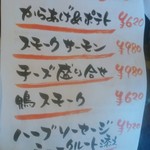 からあげ&ポテト ¥620
スモークサーモン ¥980
チーズ盛り合せ ¥980
鴨スモーク ¥620
ハーブソーセージ